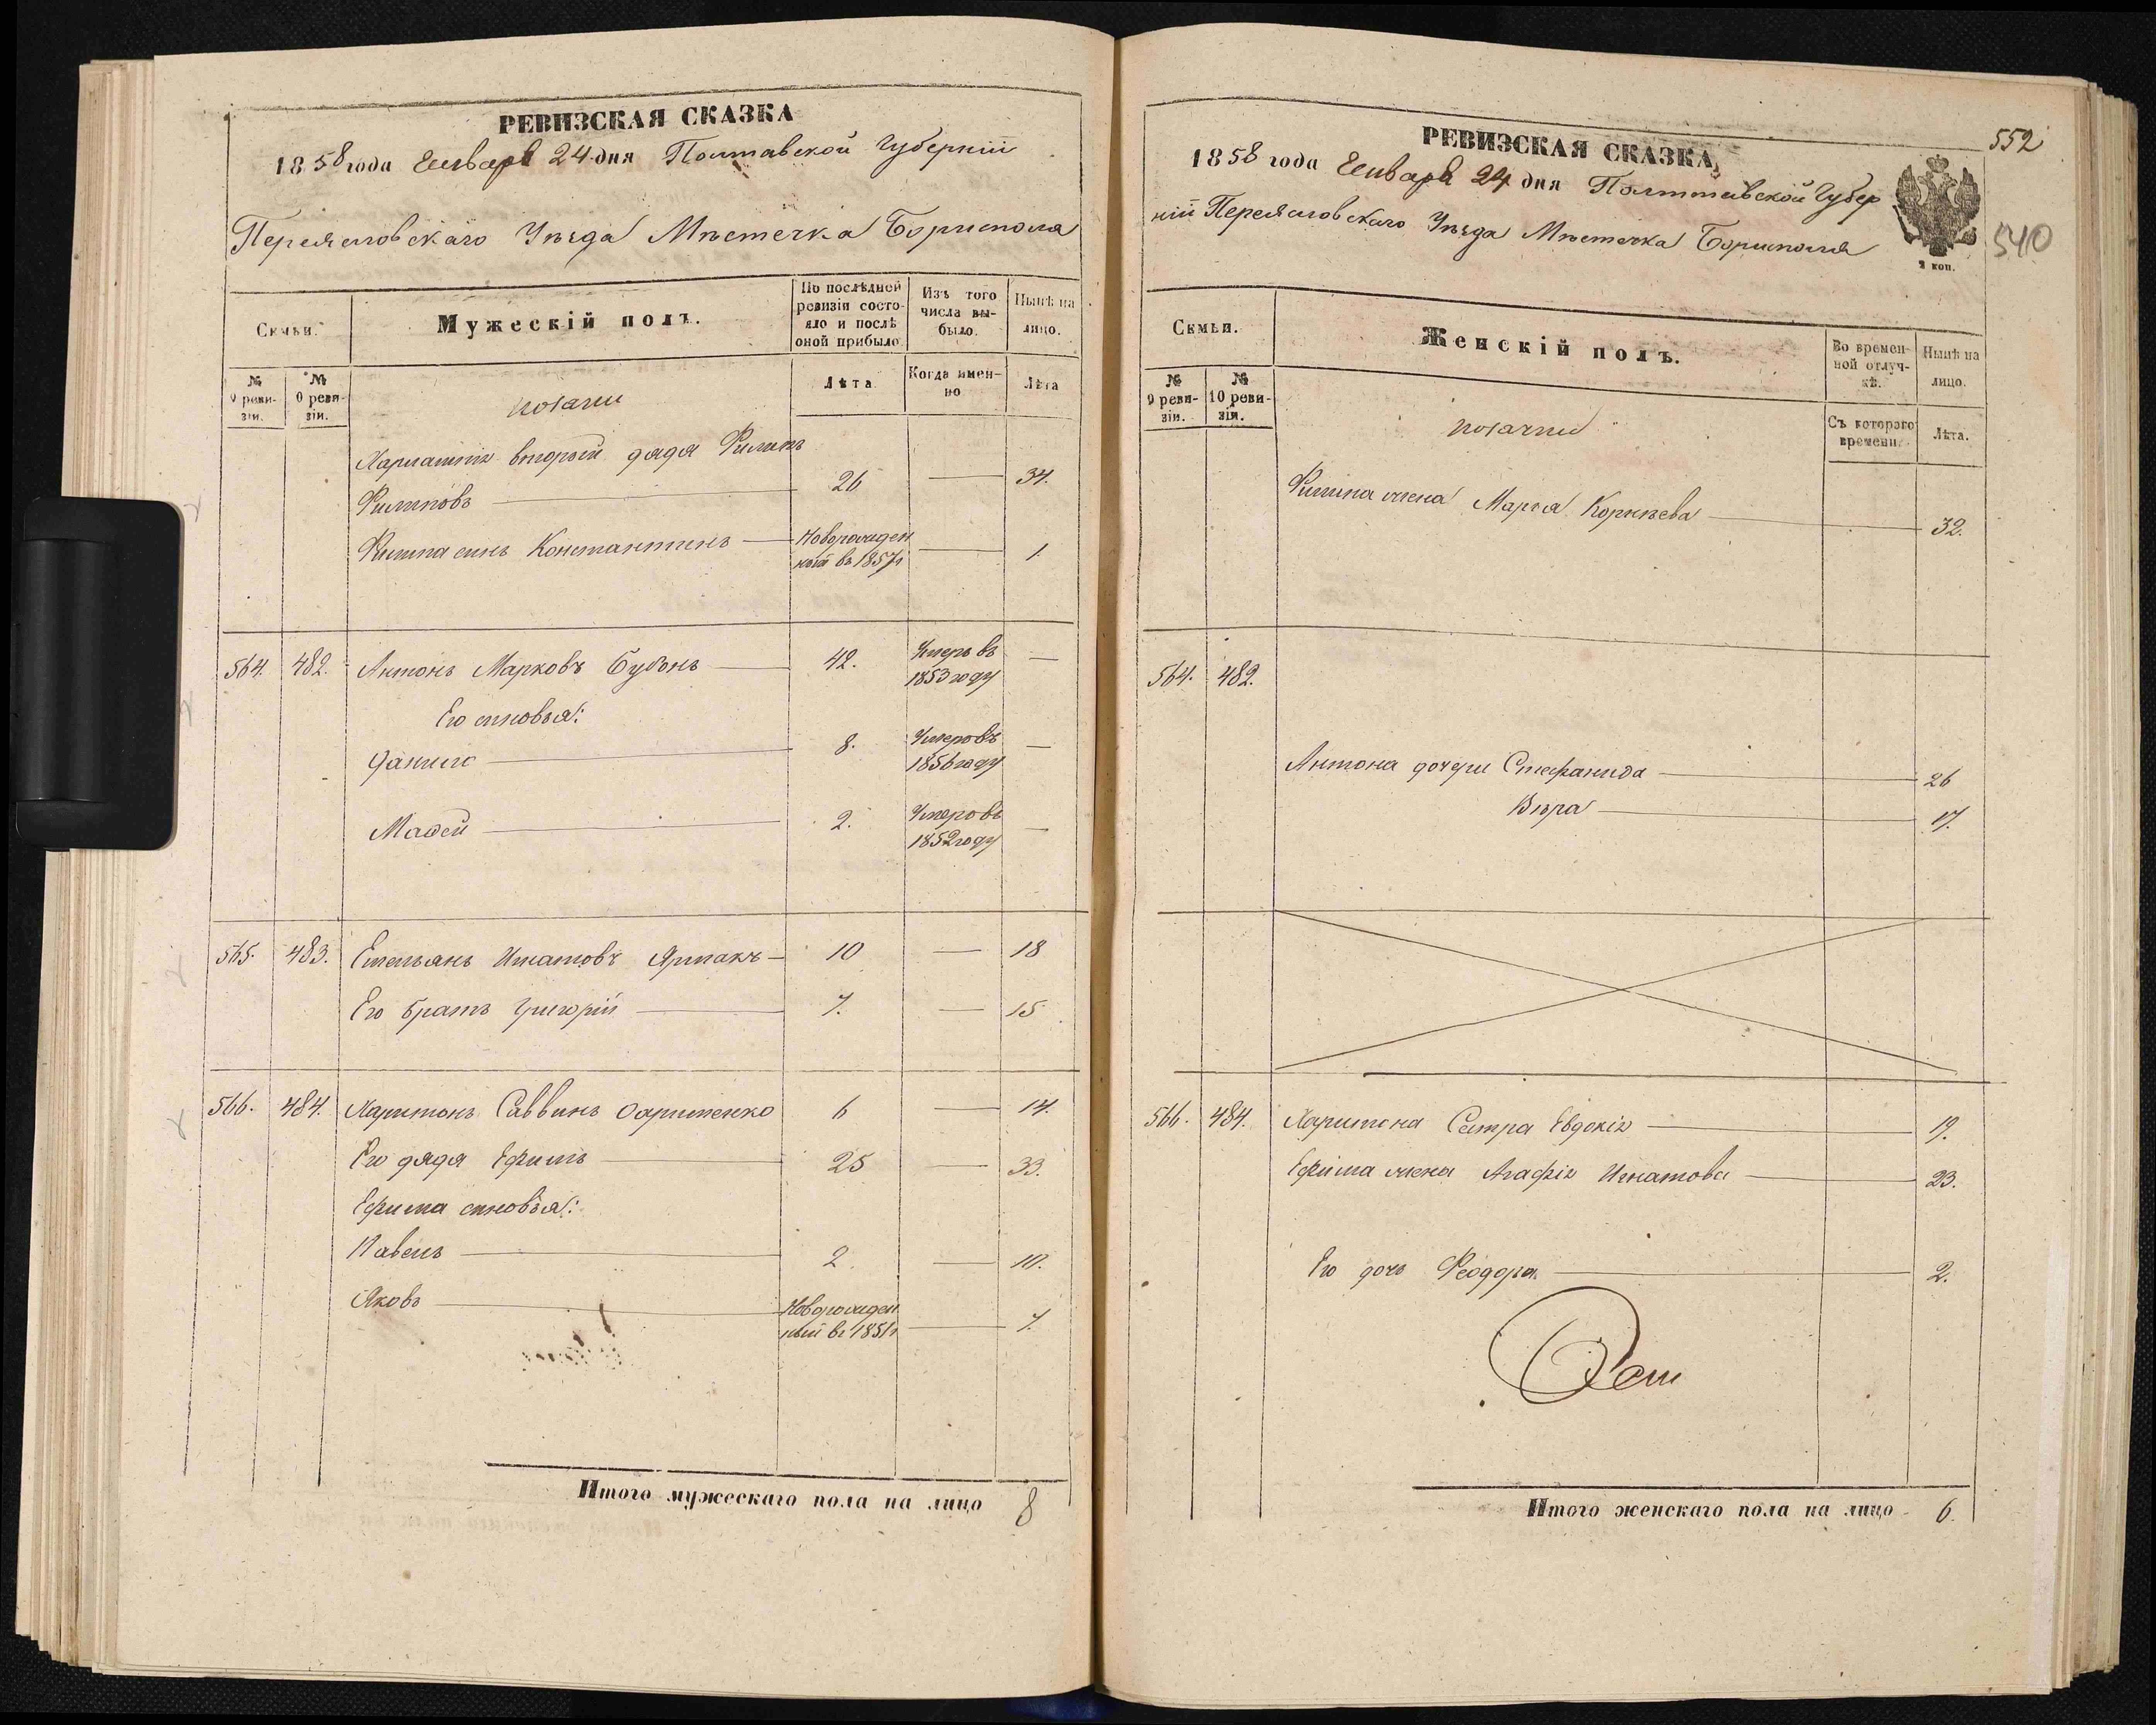 РЕВИЗСКАЯ СКАЗКА
1858 года Генваря 24 дня Полтавской Губерніи
Переясловскаго Уѣзда Мѣстечка Борисполя
Семьи.
Мужескій полъ.
По послѣдней ревизіи состояло и послѣ оной прибыло
Изъ того числа выбыло.
Нынѣ на лицо.
№ 9 ревизіи.
№ 0 ревизіи.
козаки
Лѣта
Когда именно
Лѣта
второй дядя Филипъ
Филиповъ 26 — 34.
Филипа синъ Константинъ Новорожден
ный въ 1857 г — 1.
564. 482. Антонъ Марковъ 42. Умеръ въ —
1853 году
Его синовья:
Данило 8. Умеръ въ —
1856 году
Мафей 2. Умеръ въ —
1852 году
565. 483. Емельянъ Игнатовъ 10 — 18
Его братъ Григорій 7. — 15
566. 484. Харитонъ Саввинъ 6 — 14.
Его дядя Ефимъ 25 — 33.
Ефима синовья:
Павелъ 2. — 10.
Яковъ Новорожден
ный въ 1851 г — 7.
Итого мужескаго пола на лицо 8
РЕВИЗСКАЯ СКАЗКА,
552
1858 года Генваря 24 дня Полтавской Губер
ніи Переясловскаго Уѣзда Мѣстечка Борисполя
540
2 коп.
Семьи.
Женскій полъ.
Во временной отлучкѣ.
Нынѣ на лицо.
№ 9 ревизіи.
№ 10 ревизіи.
козачки
Съ котораго времени.
Лѣта.
Филипа жена Марѳа Корнѣева — 32.
564. 482.
Антона дочери Стефанида 26
Вѣра 17.
566. 484. Харитона Сестра Евдокія 19.
Ефима жена Агафія Игнатова 23.
Его дочь Феодора 2.
Итого женскаго пола на лицо 6.